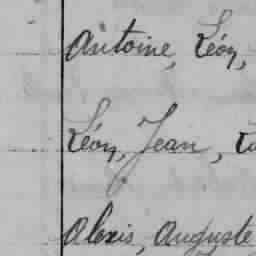 Antoine, Léon,
Léon, Jean,
Alexis, Auguste